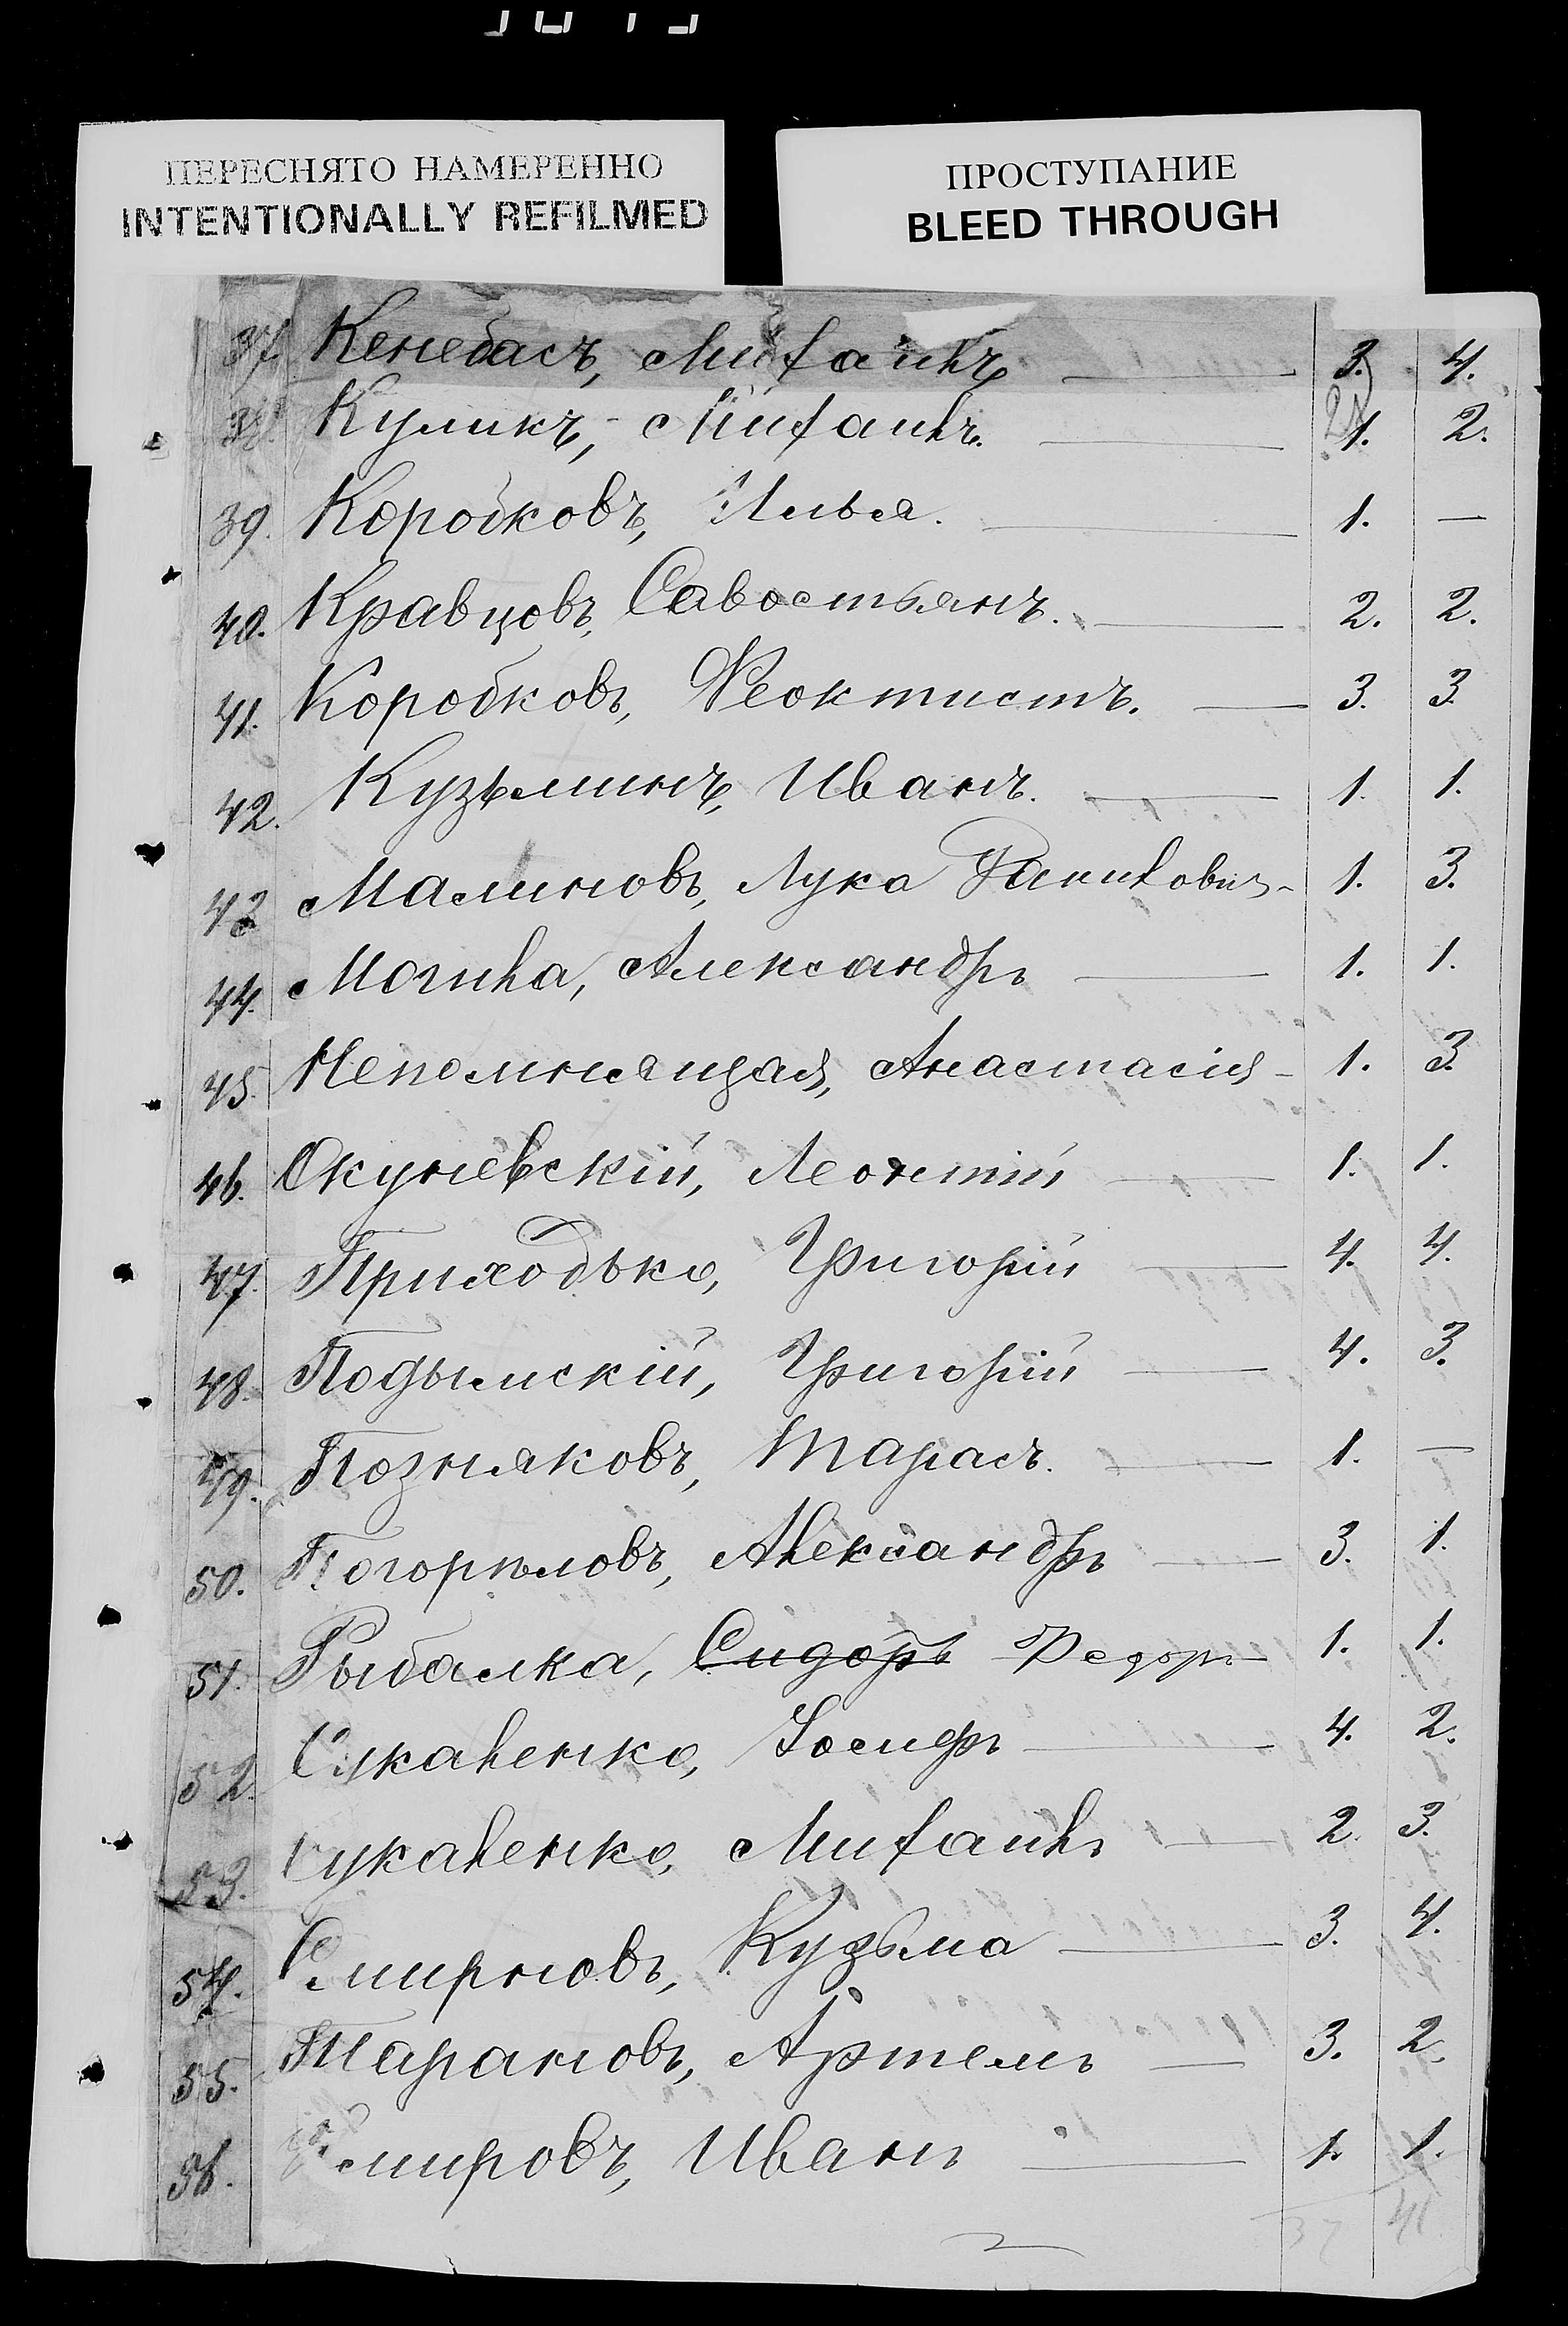 ПЕРЕСНЯТО НАМЕРЕННО
INTENTIONALLY REFILMED
ПРОСТУПАНИЕ
BLEED THROUGH
37. Кенебасъ, Михаилъ — 3. 4.
38. Куликъ, Михаилъ. — 1. 2.
39. Коробковъ, Илья. — 1. —
40. Кравцовъ, Савостьянъ. — 2. 2.
41. Коробковъ, Феоктистъ. — 3. 3.
42. Кузьминъ, Иванъ. — 1. 1.
43 Малиновъ, Лука — 1. 3.
44. Могила, Александръ — 1. 1.
45. Непомнящая, Анастасія — 1. 3.
46. Окуневскій, Леонтій — 1. 1.
47. Приходько, Григорій — 4. 4.
48. Подымскій, Григорій — 4. 3.
49. Позняковъ, Тарасъ. — 1. —
50. Погорѣловъ, Александръ — 3. 1.
51. Рыбалка, Сидоръ Федоръ — 1. 1.
52. Сукаленко, Іосифъ — 4. 2.
53. Сукаленко, Михаилъ — 2. 3.
54. Смирновъ, Кузьма — 3. 4.
55. Тарановъ, Артемъ — 3. 2.
56. Иванъ — 1. 1.
37 41